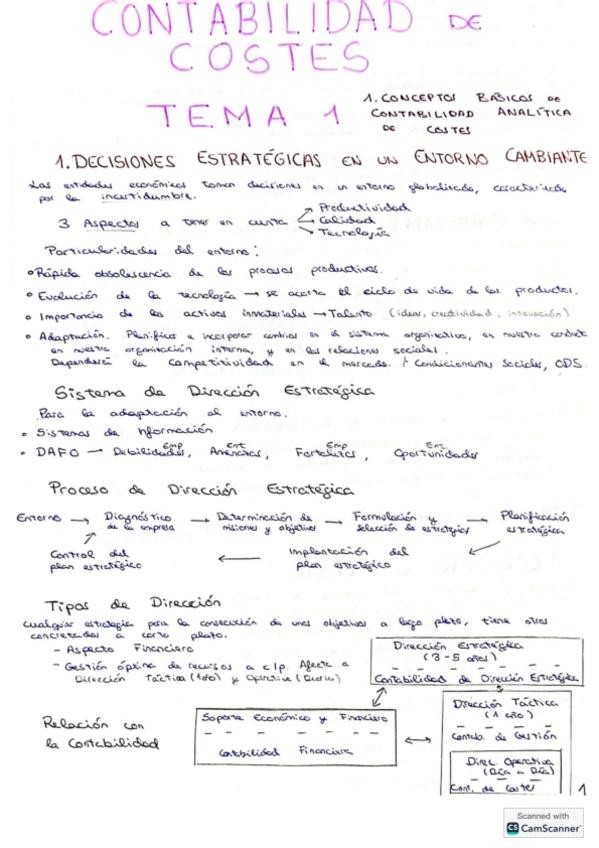 CONTABILIDAD DE
COSTES
TEMA 1
1. CONCEPTOS BÁSICOS DE
CONTABILIDAD ANALÍTICA
DE COSTES
1. DECISIONES ESTRATÉGICAS EN UN ENTORNO CAMBIANTE
Las entidades económicas toman decisiones en un entorno globalizado, caracterizado
por la incertidumbre.
3 Aspectos a tener en cuenta → Productividad
→ Calidad
→ Tecnología
Particularidades del entorno:
• Rápida obsolescencia de los procesos productivos.
• Evolución de la tecnología → se acorta el ciclo de vida de los productos.
• Importancia de los activos inmateriales → Talento (ideas, creatividad, innovación)
• Adaptación. Planificar e incorporar cambios en el sistema organizativo, en nuestra conducta
en nuestra organización interna, y en las relaciones sociales.
Dependerá la competitividad en el mercado. Condicionantes Sociales, ODS.
Sistema de Dirección Estratégica
Para la adaptación al entorno.
• Sistemas de Información
Emp Ent Emp Ent
• DAFO → Debilidades, Amenazas, Fortalezas, Oportunidades
Proceso de Dirección Estratégica
Entorno → Diagnóstico de la empresa → Determinación de misiones y objetivos → Formulación y selección de estrategias → Planificación estratégica
Control del plan estratégico ← Implantación del plan estratégico
Tipos de Dirección
Cualquier estrategia para la consecución de unos objetivos a largo plazo, tiene otros
concretados a corto plazo.
- Aspecto Financiero
- Gestión óptima de recursos a c/p. Afecta a
Dirección Táctica (1año) y Operativa (Diario)
Dirección Estratégica
(3-5 años)
Contabilidad de Dirección Estratégica
Relación con
la Contabilidad
Soporte Económico y Financiero
Contabilidad Financiera
Dirección Táctica
(1 año)
Contab. de Gestión
Direc. Operativa
(Día a Día)
Cont. de Costes
1
Scanned with
CS CamScanner